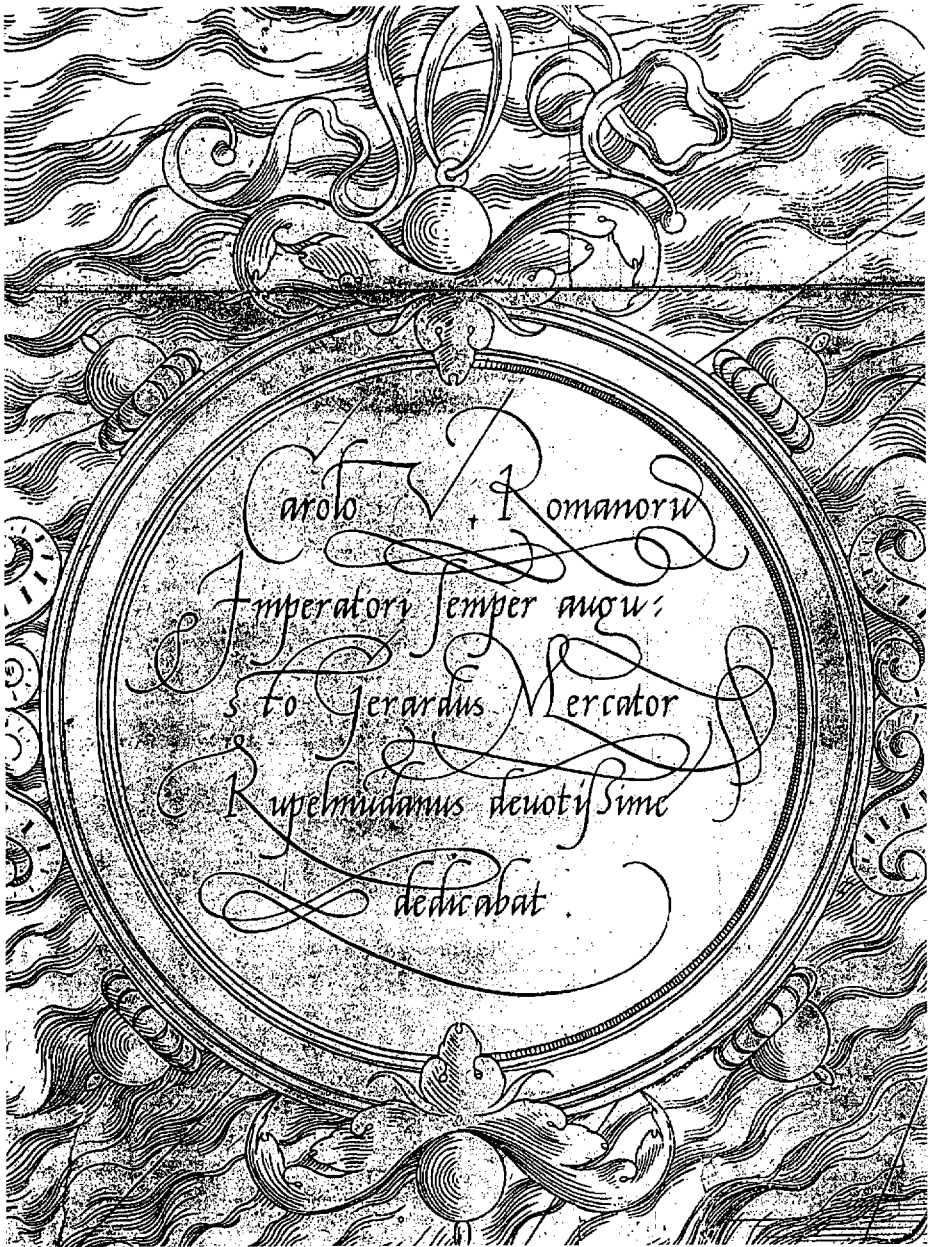 Carolo V. Romanorū
Imperatori semper augu:
sto Gerardus Mercator
Rupelmūdanus deuotissime
dedicabat.